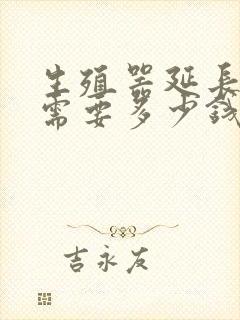 生殖器延长
需要多少钱
吉永友